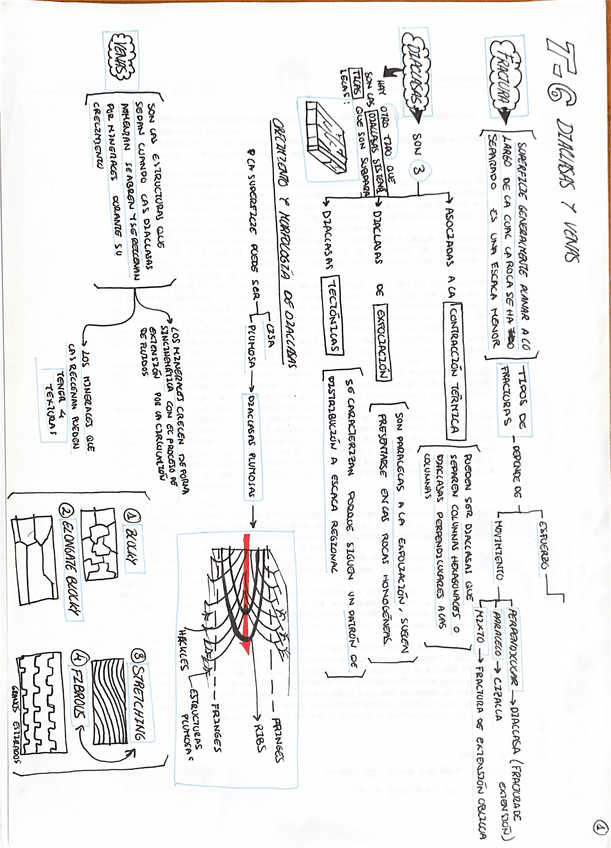 ①
T-6 DIACLASAS Y VENAS
FRACTURA
SUPERFICIE GENERALMENTE PLANAR A LO
LARGO DE LA CUAL LA ROCA SE HA
SEPARADO ES UNA ESCALA MENOR
TIPOS DE
FRACTURAS
DEPENDE DE
ESFUERZO
MOVIMIENTO
PERPENDICULAR → DIACLASA (FRACTURA DE
EXTENSIÓN)
PARALELO → CIZALLA
MIXTO → FRACTURA DE EXTENSIÓN OBLICUA
DIACLASAS
SON 3
ASOCIADAS A LA CONTRACCIÓN TÉRMICA
PUEDEN SER DIACLASAS QUE
SEPAREN COLUMNAS HEXAGONALES O
DIACLASAS PERPENDICULARES A LAS
COLUMNAS
DIACLASAS DE EXFOLIACIÓN
SON PARALELAS A LA EXFOLIACIÓN, SUELEN
PRESENTARSE EN LAS ROCAS HOMOGÉNEAS
DIACLASAS TECTÓNICAS
SE CARACTERIZAN PORQUE SIGUEN UN PATRÓN DE
DISTRIBUCIÓN A ESCALA REGIONAL
HAY OTRO TIPO QUE
SON LAS DIACLASAS SISTEMÁ
TICAS QUE SON SUBPARA
LELAS:
CRECIMIENTO Y MORFOLOGÍA DE DIACLASAS
LA SUPERFICIE PUEDE SER
LISA
PLUMOSA → DIACLASAS PLUMOSAS
FRINGES
RIBS
FRINGES
HACKLES
ESTRUCTURAS
PLUMOSAS
VENAS
SON LAS ESTRUCTURAS QUE
SE DAN CUANDO LAS DIACLASAS
AUMENTAN SE ABREN Y SE RELLENAN
POR MINERALES DURANTE SU
CRECIMIENTO
LOS MINERALES CRECEN DE FORMA
SINCINEMÁTICA CON EL PROCESO DE
EXTENSIÓN POR LA CIRCULACIÓN
DE FLUIDOS
LOS MINERALES QUE
LAS RELLENAN PUEDEN
TENER 4
TEXTURAS
① BLOCKY
② ELONGATE BLOCKY
③ STRETCHING
④ FIBROUS
GRANOS ESTIRADOS